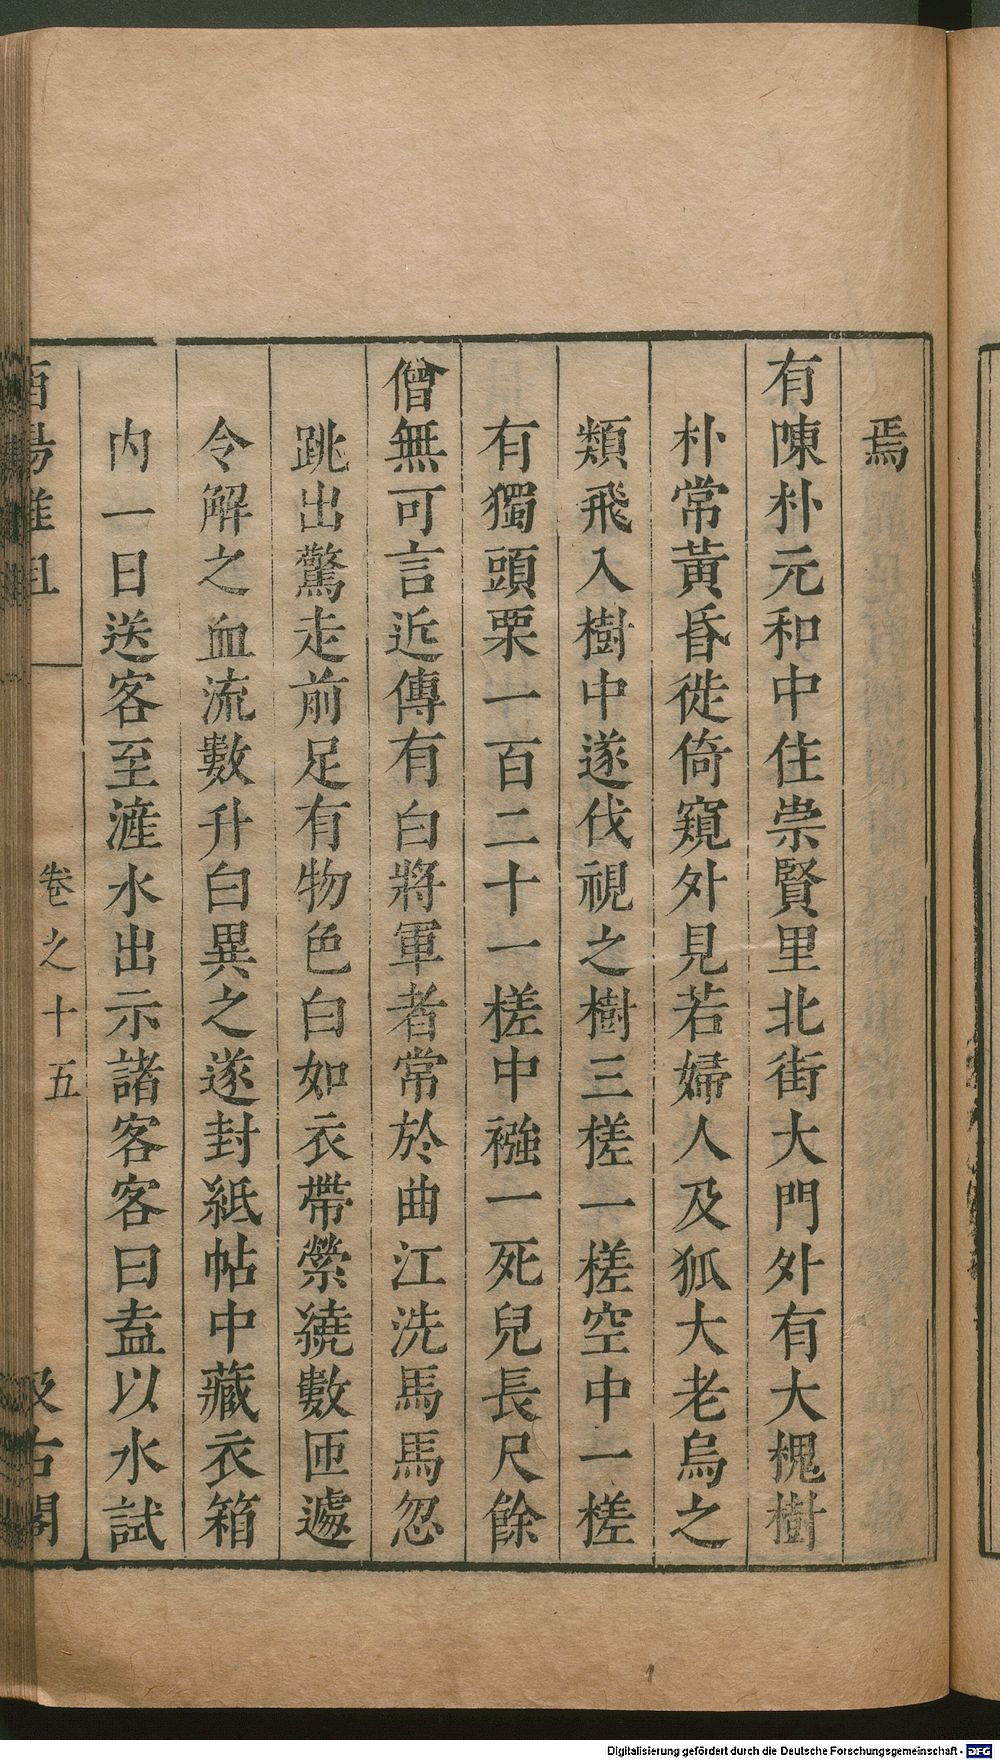 焉
有陳朴元和中住崇賢里北街大門外有大槐樹
朴常黃昏徙倚窺外見若婦人及狐大老烏之
類飛入樹中遂伐視之樹三槎一槎空中一槎
有獨頭栗一百二十一槎中襁一死兒長尺餘
僧無可言近傳有白將軍者常於曲江洗馬馬忽
跳出驚走前足有物色白如衣帶縈繞數匝遽
令解之血流數升白異之遂封紙帖中藏衣箱
內一日送客至滻水出示諸客客曰盍以水試
酉陽雜俎
卷之十五
汲古閣
Digitalisierung gefördert durch die Deutsche Forschungsgemeinschaft - DFG